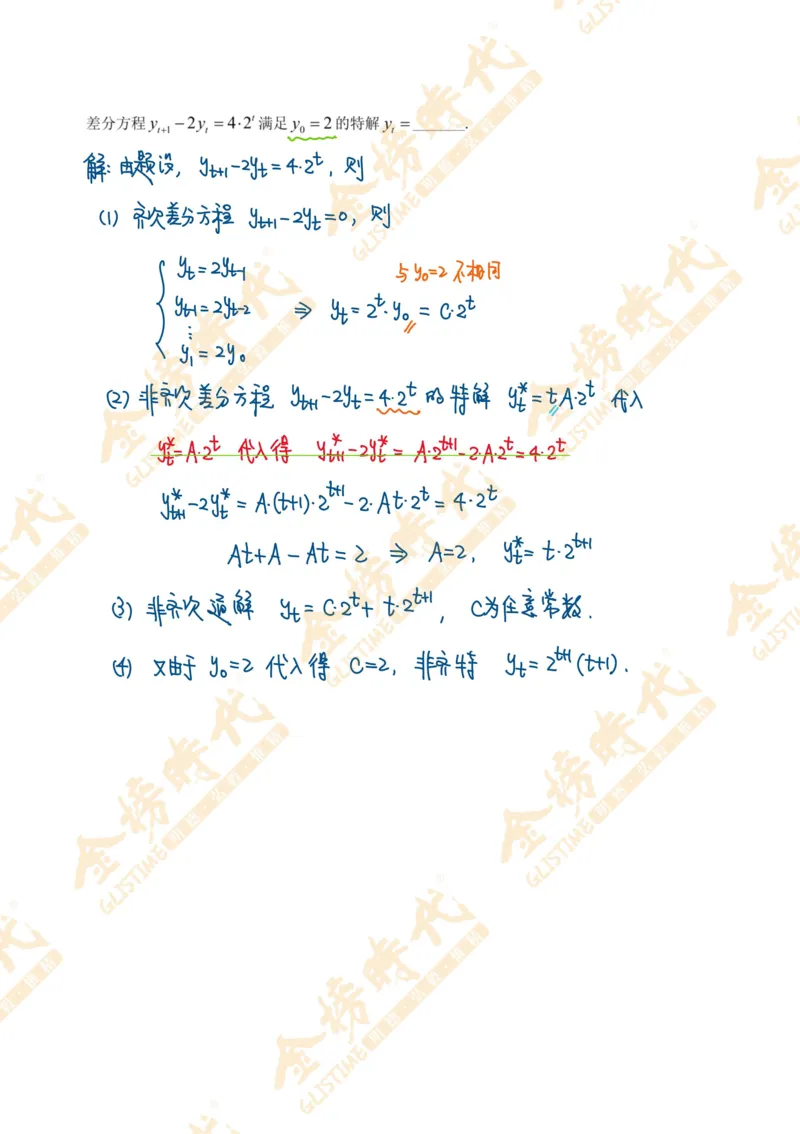 差分方程 y_{t+1} − 2y_t = 4·2^t 满足 y_0 = 2 的特解 y_t = ______.
解: 由题设, y_{t+1}-2y_t=4·2^t, 则
(1) 齐次差分方程 y_{t+1}-2y_t=0, 则
y_t=2y_{t-1}
与y_0=2不相同
y_{t-1}=2y_{t-2} ⇒ y_t=2^t·y_0=C·2^t
⋮
y_1=2y_0
(2) 非齐次差分方程 y_{t+1}-2y_t=4·2^t 的特解 y_t^*=tA·2^t 代入
y_t^*=A·2^t 代入得 y_{t+1}^*-2y_t^*=A·2^{t+1}-2·A·2^t=4·2^t
y_{t+1}^*-2y_t^*=A·(t+1)·2^{t+1}-2·At·2^t=4·2^t
At+A-At=2 ⇒ A=2, y_t^*=t·2^{t+1}
(3) 非齐次通解 y_t=C·2^t+t·2^{t+1}, C为任意常数.
(4) 又由于 y_0=2 代入得 C=2, 非齐特 y_t=2^{t+1}(t+1).
金榜時代
GLISTIME